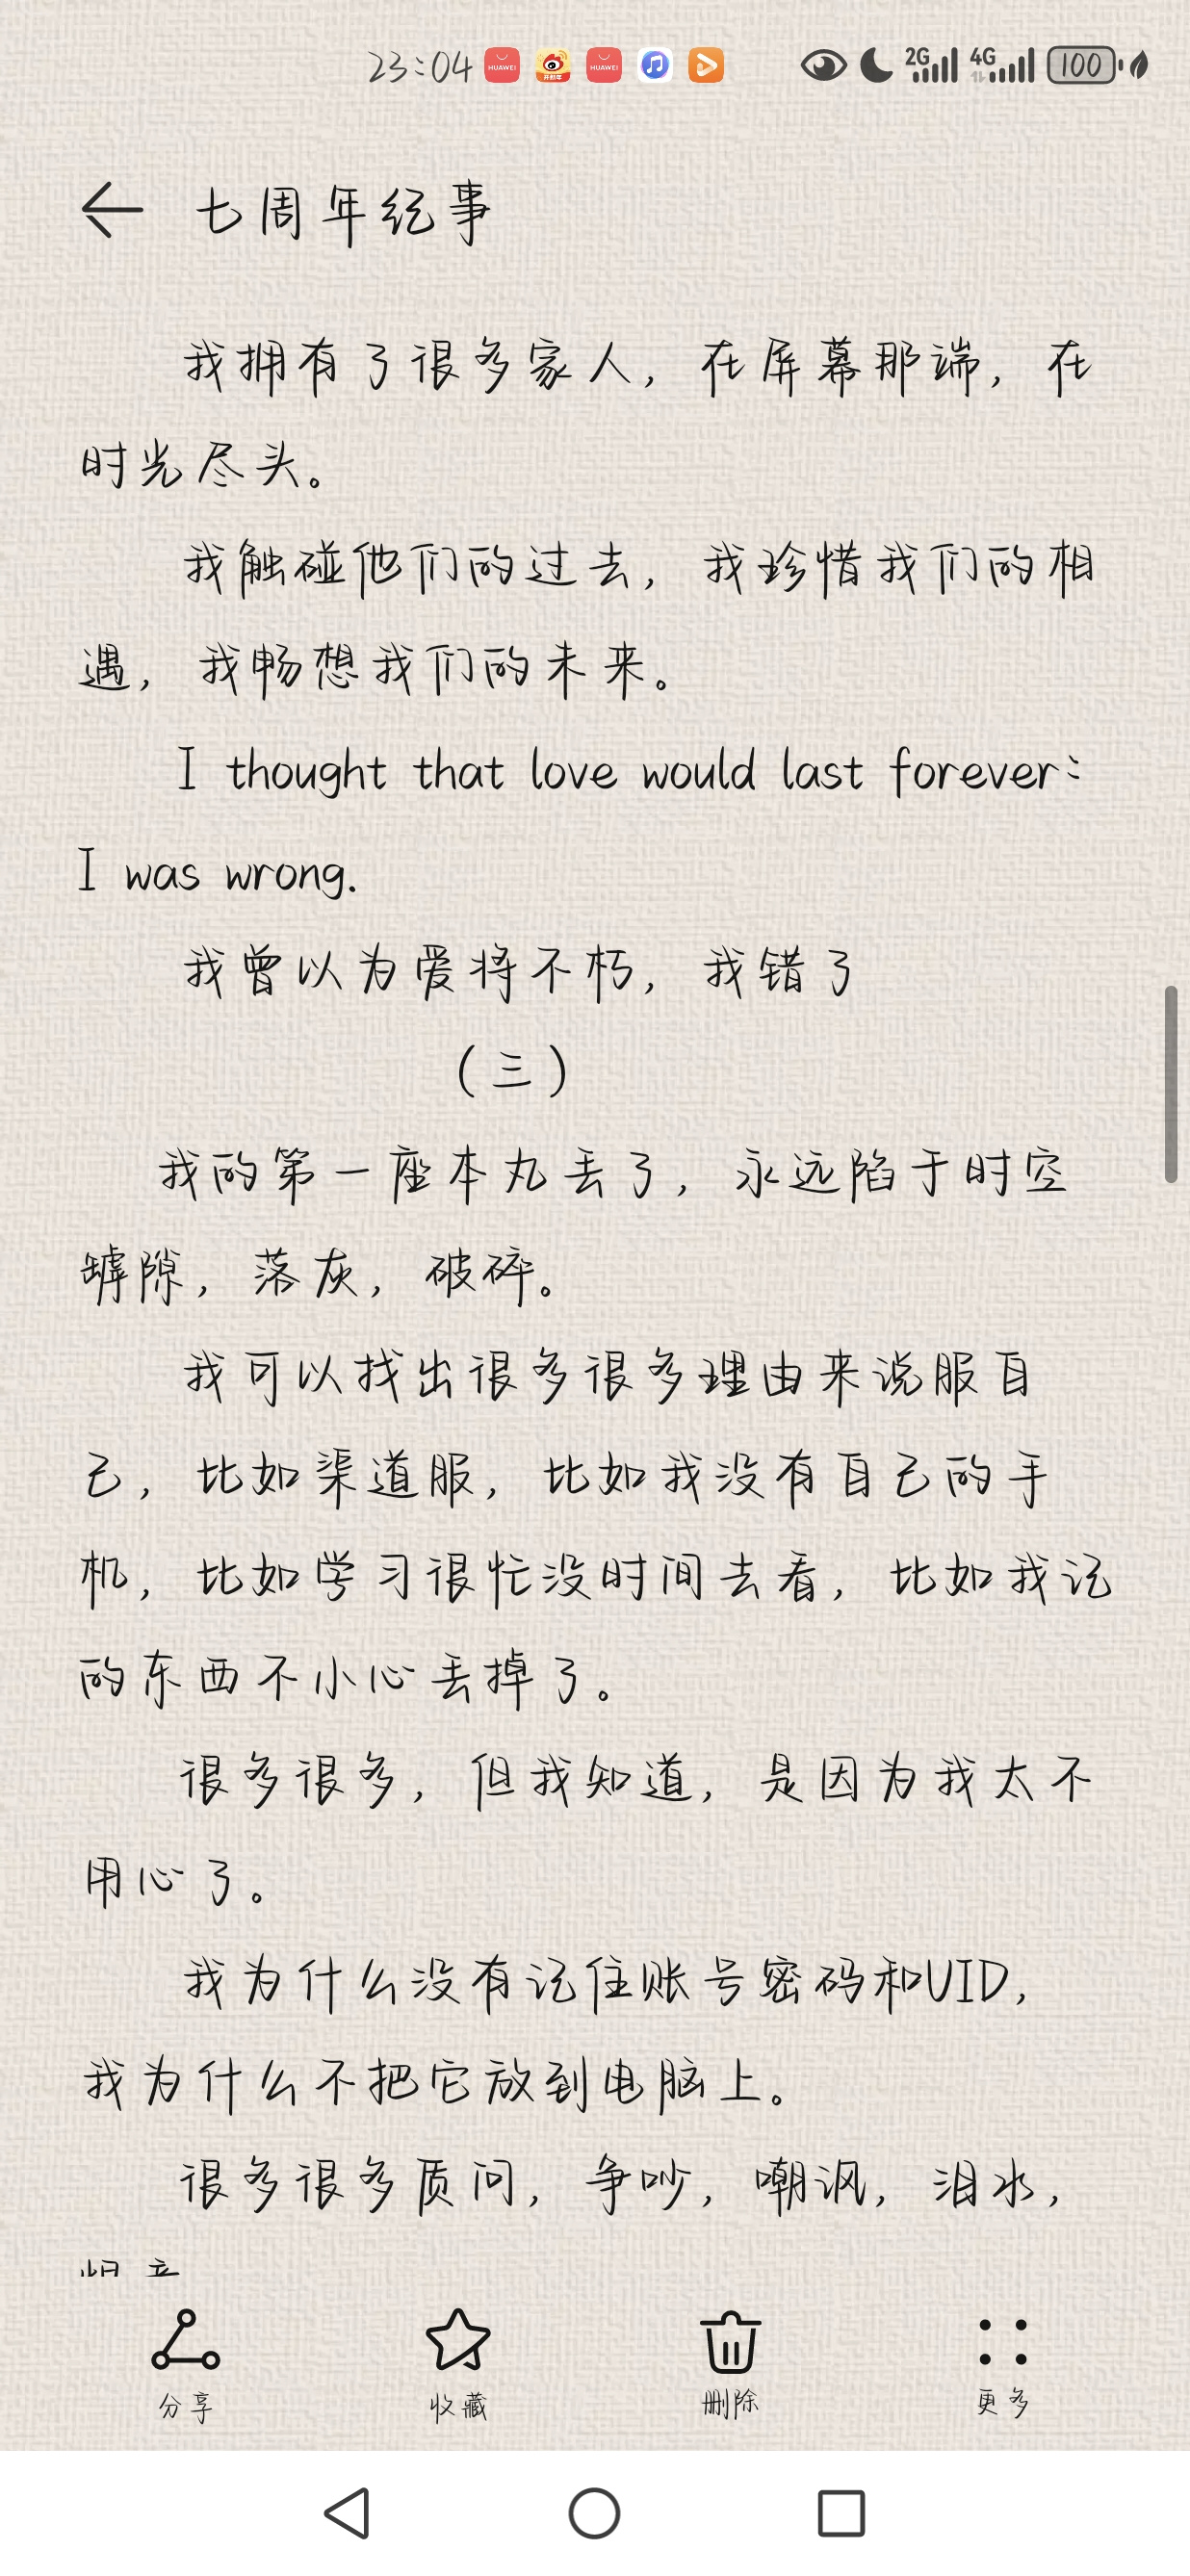 23:04
HUAWEI
HUAWEI
2G
4G
100
七周年纪事
我拥有了很多家人，在屏幕那端，在
时光尽头。
我触碰他们的过去，我珍惜我们的相
遇，我畅想我们的未来。
I thought that love would last forever:
I was wrong.
我曾以为爱将不朽，我错了
（三）
我的第一座本丸丢了，永远陷于时空
罅隙，落灰，破碎。
我可以找出很多很多理由来说服自
己，比如渠道服，比如我没有自己的手
机，比如学习很忙没时间去看，比如我记
的东西不小心丢掉了。
很多很多，但我知道，是因为我太不
用心了。
我为什么没有记住账号密码和UID，
我为什么不把它放到电脑上。
很多很多质问，争吵，嘲讽，泪水，
分享
收藏
删除
更多